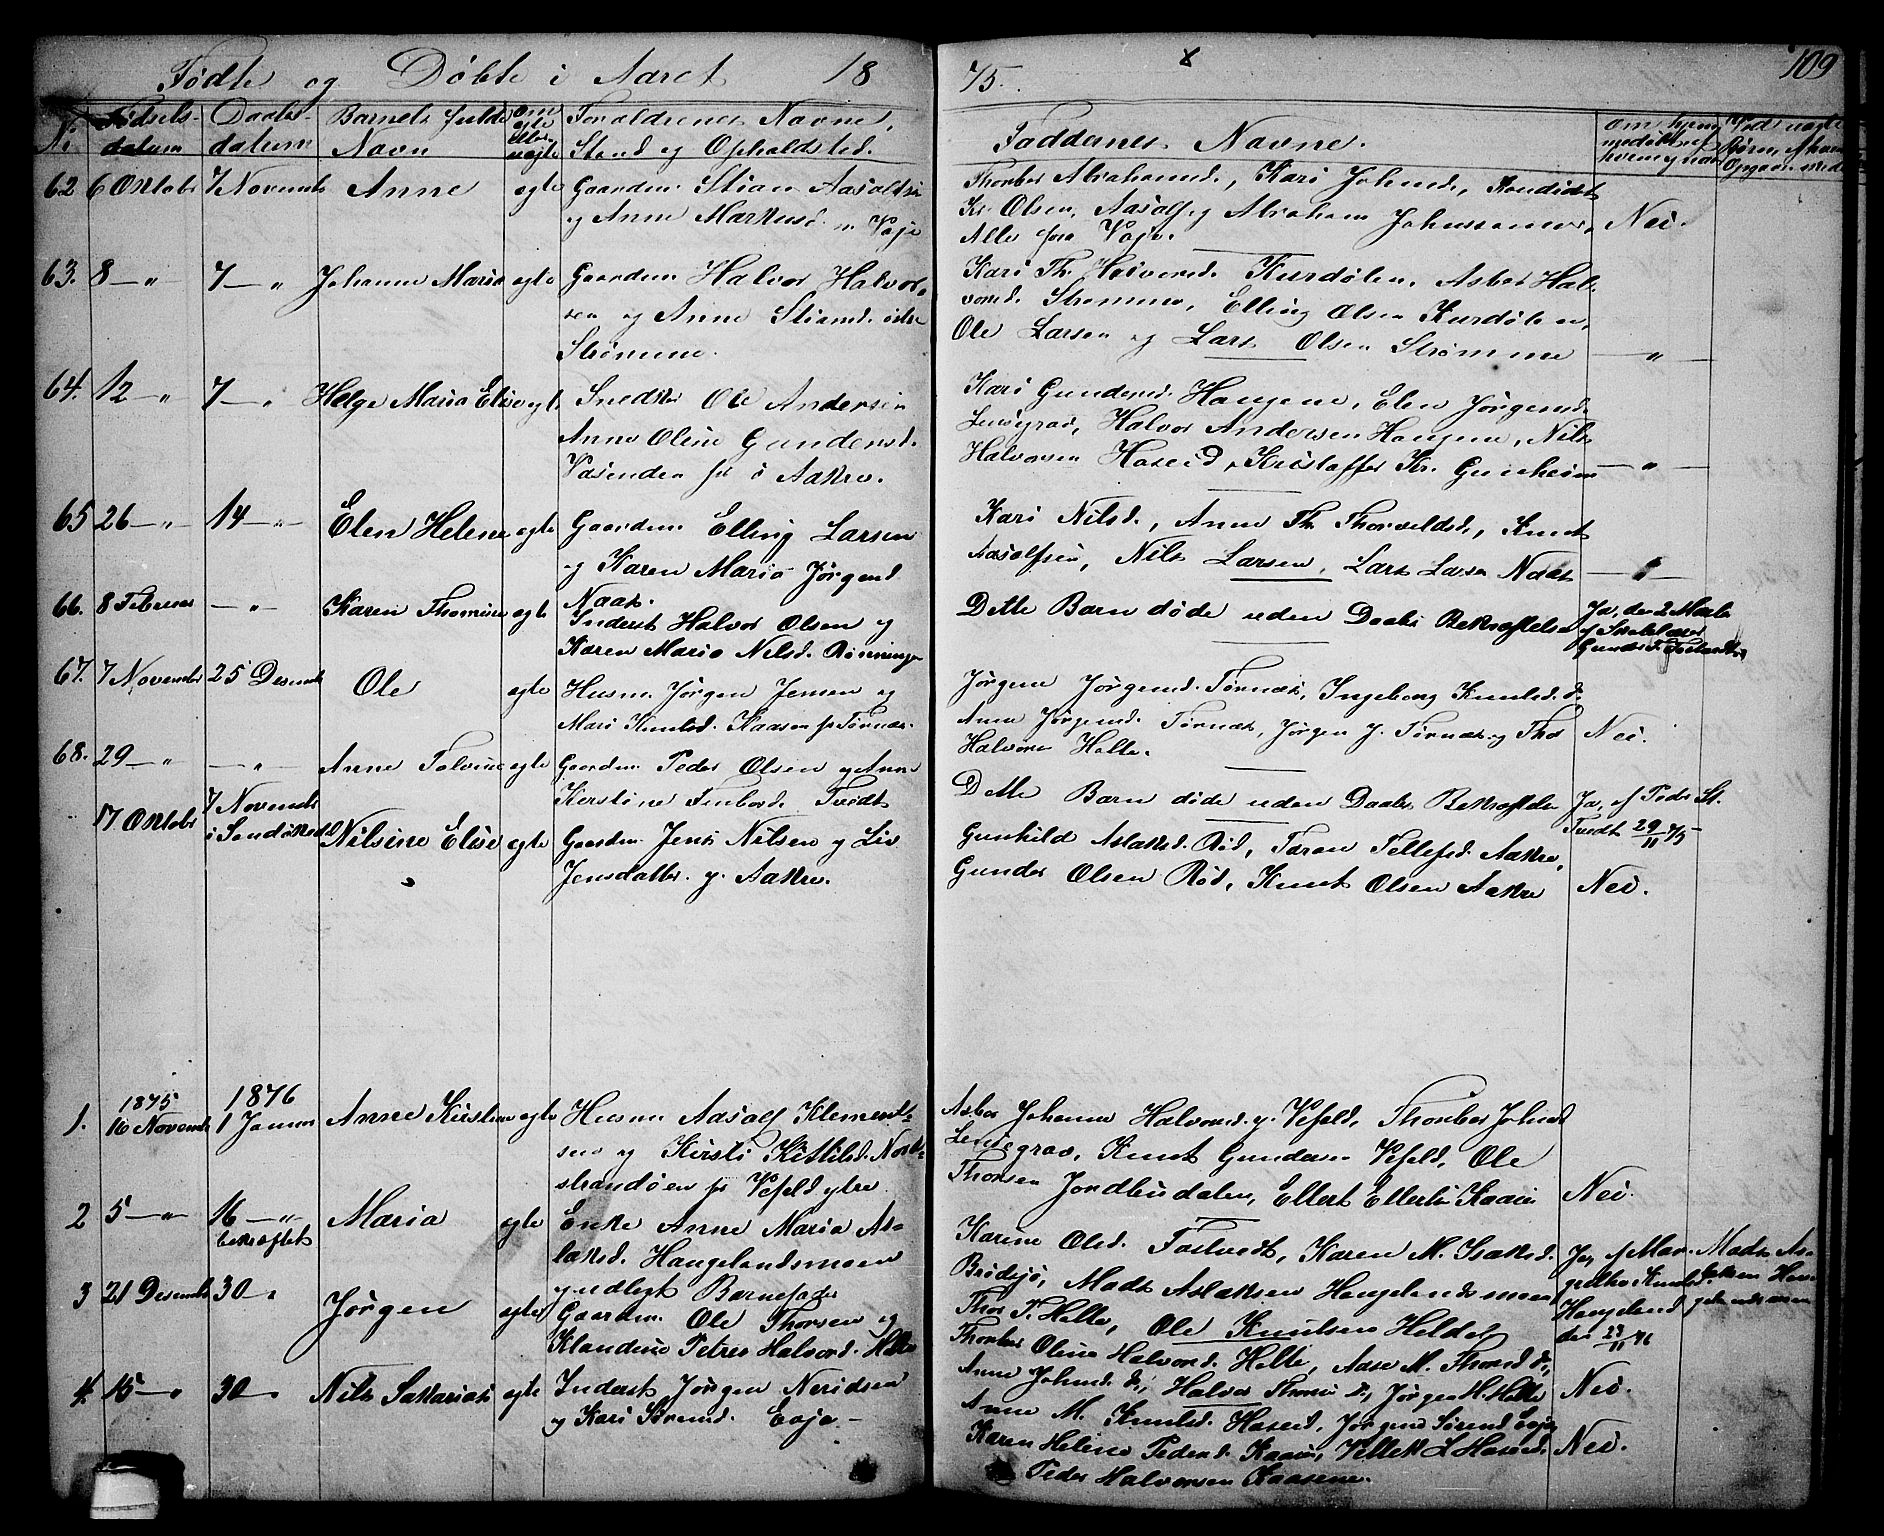 Fødte og Døbte i Aaret 18
75. 109
No Fødsels- datum Daabs- datum Barnets fulde Navn om ægte eller uægte Forældrenes Navne, Stand og Opholdsted.
Faddernes Navne.
62 6 Oktober 7 Novembr Anne ægte Gaardm. Stian Aasolfsen
og Anne Markusd. n. Vaje
Thorber Abrahamsd., Kari Johnsd., Kandidat
Kr. Olsen, Aasolf og Abraham Johnssønner,
Alle fra Vaje. Nei.
63. 8 — " 7 — " Johanne Maria ægte Gaardm. Halvor Halvor-
sen og Anne Stiansd. østre
Strømme.
Kari Th. Halvorsd. Kurdølen, Asber Hal-
vorsd. Strømme, Elling Olsen Kurdølen,
Ole Larsen og Lars Olsen Strømme — " —
64. 12 — " 7 — " Helge Maria Elise ægt. Snedker Ole Andersen
Anne Oline Gundersd.
Vasenden fr i Aakre.
Kari Gundersd. Haugene, Elen Jørgensd.
Lensgrav, Halvor Andersen Haugene, Nils
Halvorsen Haseid, Kristoffer Kr. Gunheim — " —
65 26 — " 14 — " Elen Helene ægte Gaardm. Elling Larsen
og Karen Maria Jørgensd.
Naas.
Kari Nilsd., Anne Th. Thorvaldsd., Knut
Aasolfsen, Nils Larsen, Lars Larsen Naas — " —
66. 8 Februar — " — Karen Thomine ægte Inderst Halvor Olsen og
Karen Maria Nilsd. Rønningen
Dette Barn døde uden Daabs Bekræftelse Ja, den 2 Marts
af Skolelærer
Gunder T.
67. 7 November 25 Desemb Ole ægte Husm. Jørgen Jensen og
Mari Knutsd. Kaasen fr Tørnæs.
Jørgine Jørgensd. Tørnæs, Ingeborg Knutsd. d:
Anne Jørgensd. Tørnæs, Jørgen J. Tørnæs og Thor
Halvorsen Helle. Nei.
68. 29 — " — " — Anne Tolvine ægte Gaardm. Peder Olsen og Anne
Kirstine Finbosd. Tvedt
Dette Barn døde uden Daabs Bekræftelse Ja, af Peder St.
Tvedt 29/11 75
17 Oktober 7 Novembr
i Sandøkedal Nilsine Elise ægte Gaardm. Jens Nilsen og Liv
Jensdatter y. Aakre.
Gunhild Aslaksd. Rød, Taran Tellefsd. Aakre,
Gunder Olsen Rød, Knut Olsen Aakre Nei.
1875 1876
1. 16 Novemb 1 Januar Anne Kirstine ægte Husm. Aasolf Klement-
sen og Kirsti Kittilsd. Nord-
strandøen fr Vefald ytre
Asber Johanne Halvorsd. y. Vefald, Thorber Johnsd
Lensgrav, Knut Gundersen Vefald, Ole
Thorsen Jordbudalen, Ellert Ellertsen Kaasen Nei.
2 5 — " 16 — "
bekræftet Maria ægte Enke Anne Maria As-
laksd. Haugelandsmoen
Barnefader
Karine Olsd. Tostvedt, Karen M. Isaksd.
Brødsjø, Mads Aslaksen Haugelandsmoen,
Thor T. Helle, Ole Knutsen Heldal
Ja, af Mar-
grethe Knutsd.
Haugeland
den 23/11 76
Mads As-
laksen Hau-
gelandsmoen
3 21 Desemb 30 " Jørgen ægte Gaardm. Ole Thorsen og
Klandine Petrea Halvorsd. Helle
Thorber Oline Halvorsd. Helle, Aase M. Thorsd. d:,
Anne Johnsd. d:, Halvor Thorsen d:, Jørgen H. Helle Nei.
4. 15 — " 30 — " Nils Sakarias ægte Inderst Jørgen Neridsen
og Kari Sørensd. Eeje —
Anne M. Knutsd. Haseid, Jørgine Sørensd Eeje
Karen Helene Pedersd. Kaasen, Vellek L. Haseid,
Peder Halvorsen Kaasene. Nei.